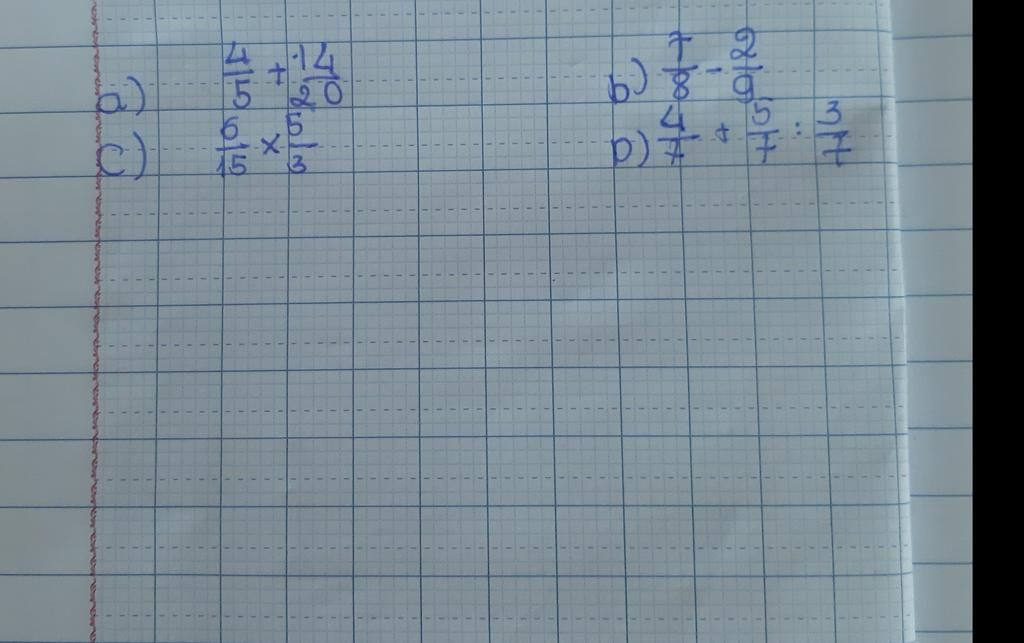 a) 4/5 + 14/20 b) 7/8 - 2/9
c) 6/15 × 5/3 D) 4/7 + 5/7 : 3/7